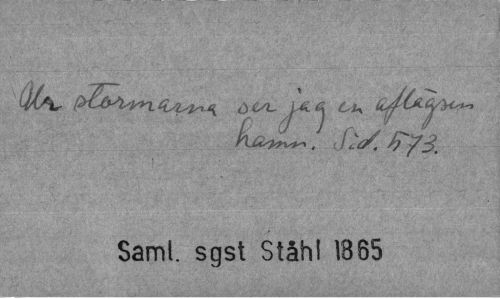 Ur stormarna ser jag en aflägsen
hamn. Sid. 573.
Saml. sgst Ståhl 1865